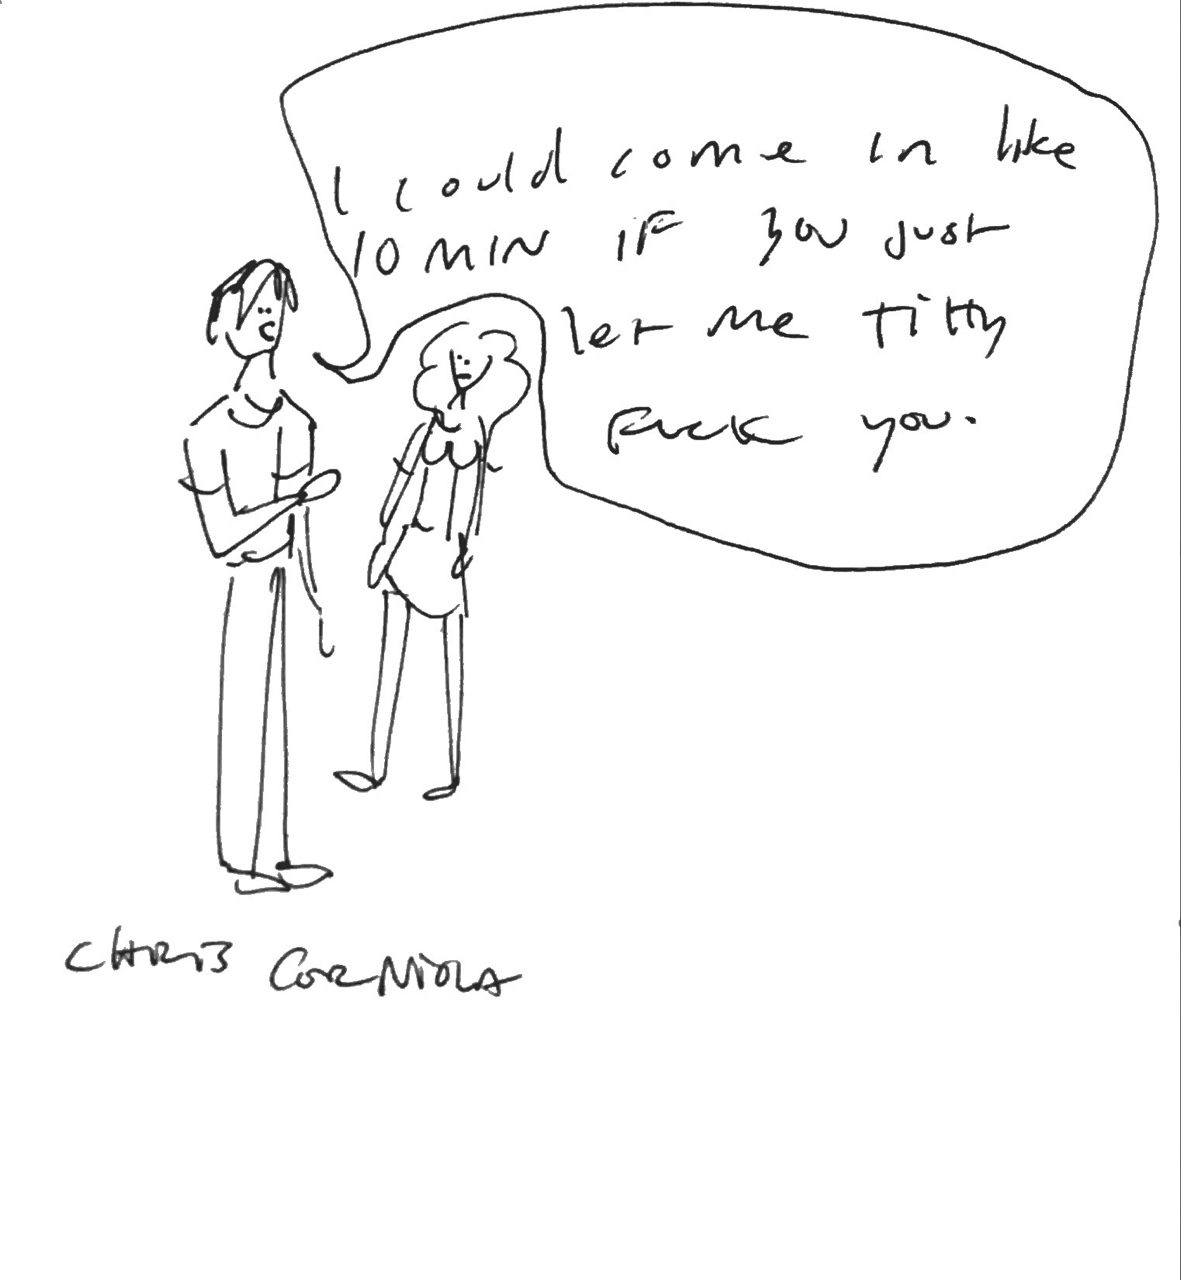 I could come in like
10 MIN IF you just
let me titty
fuck you.
CHRIS CORNIOLA